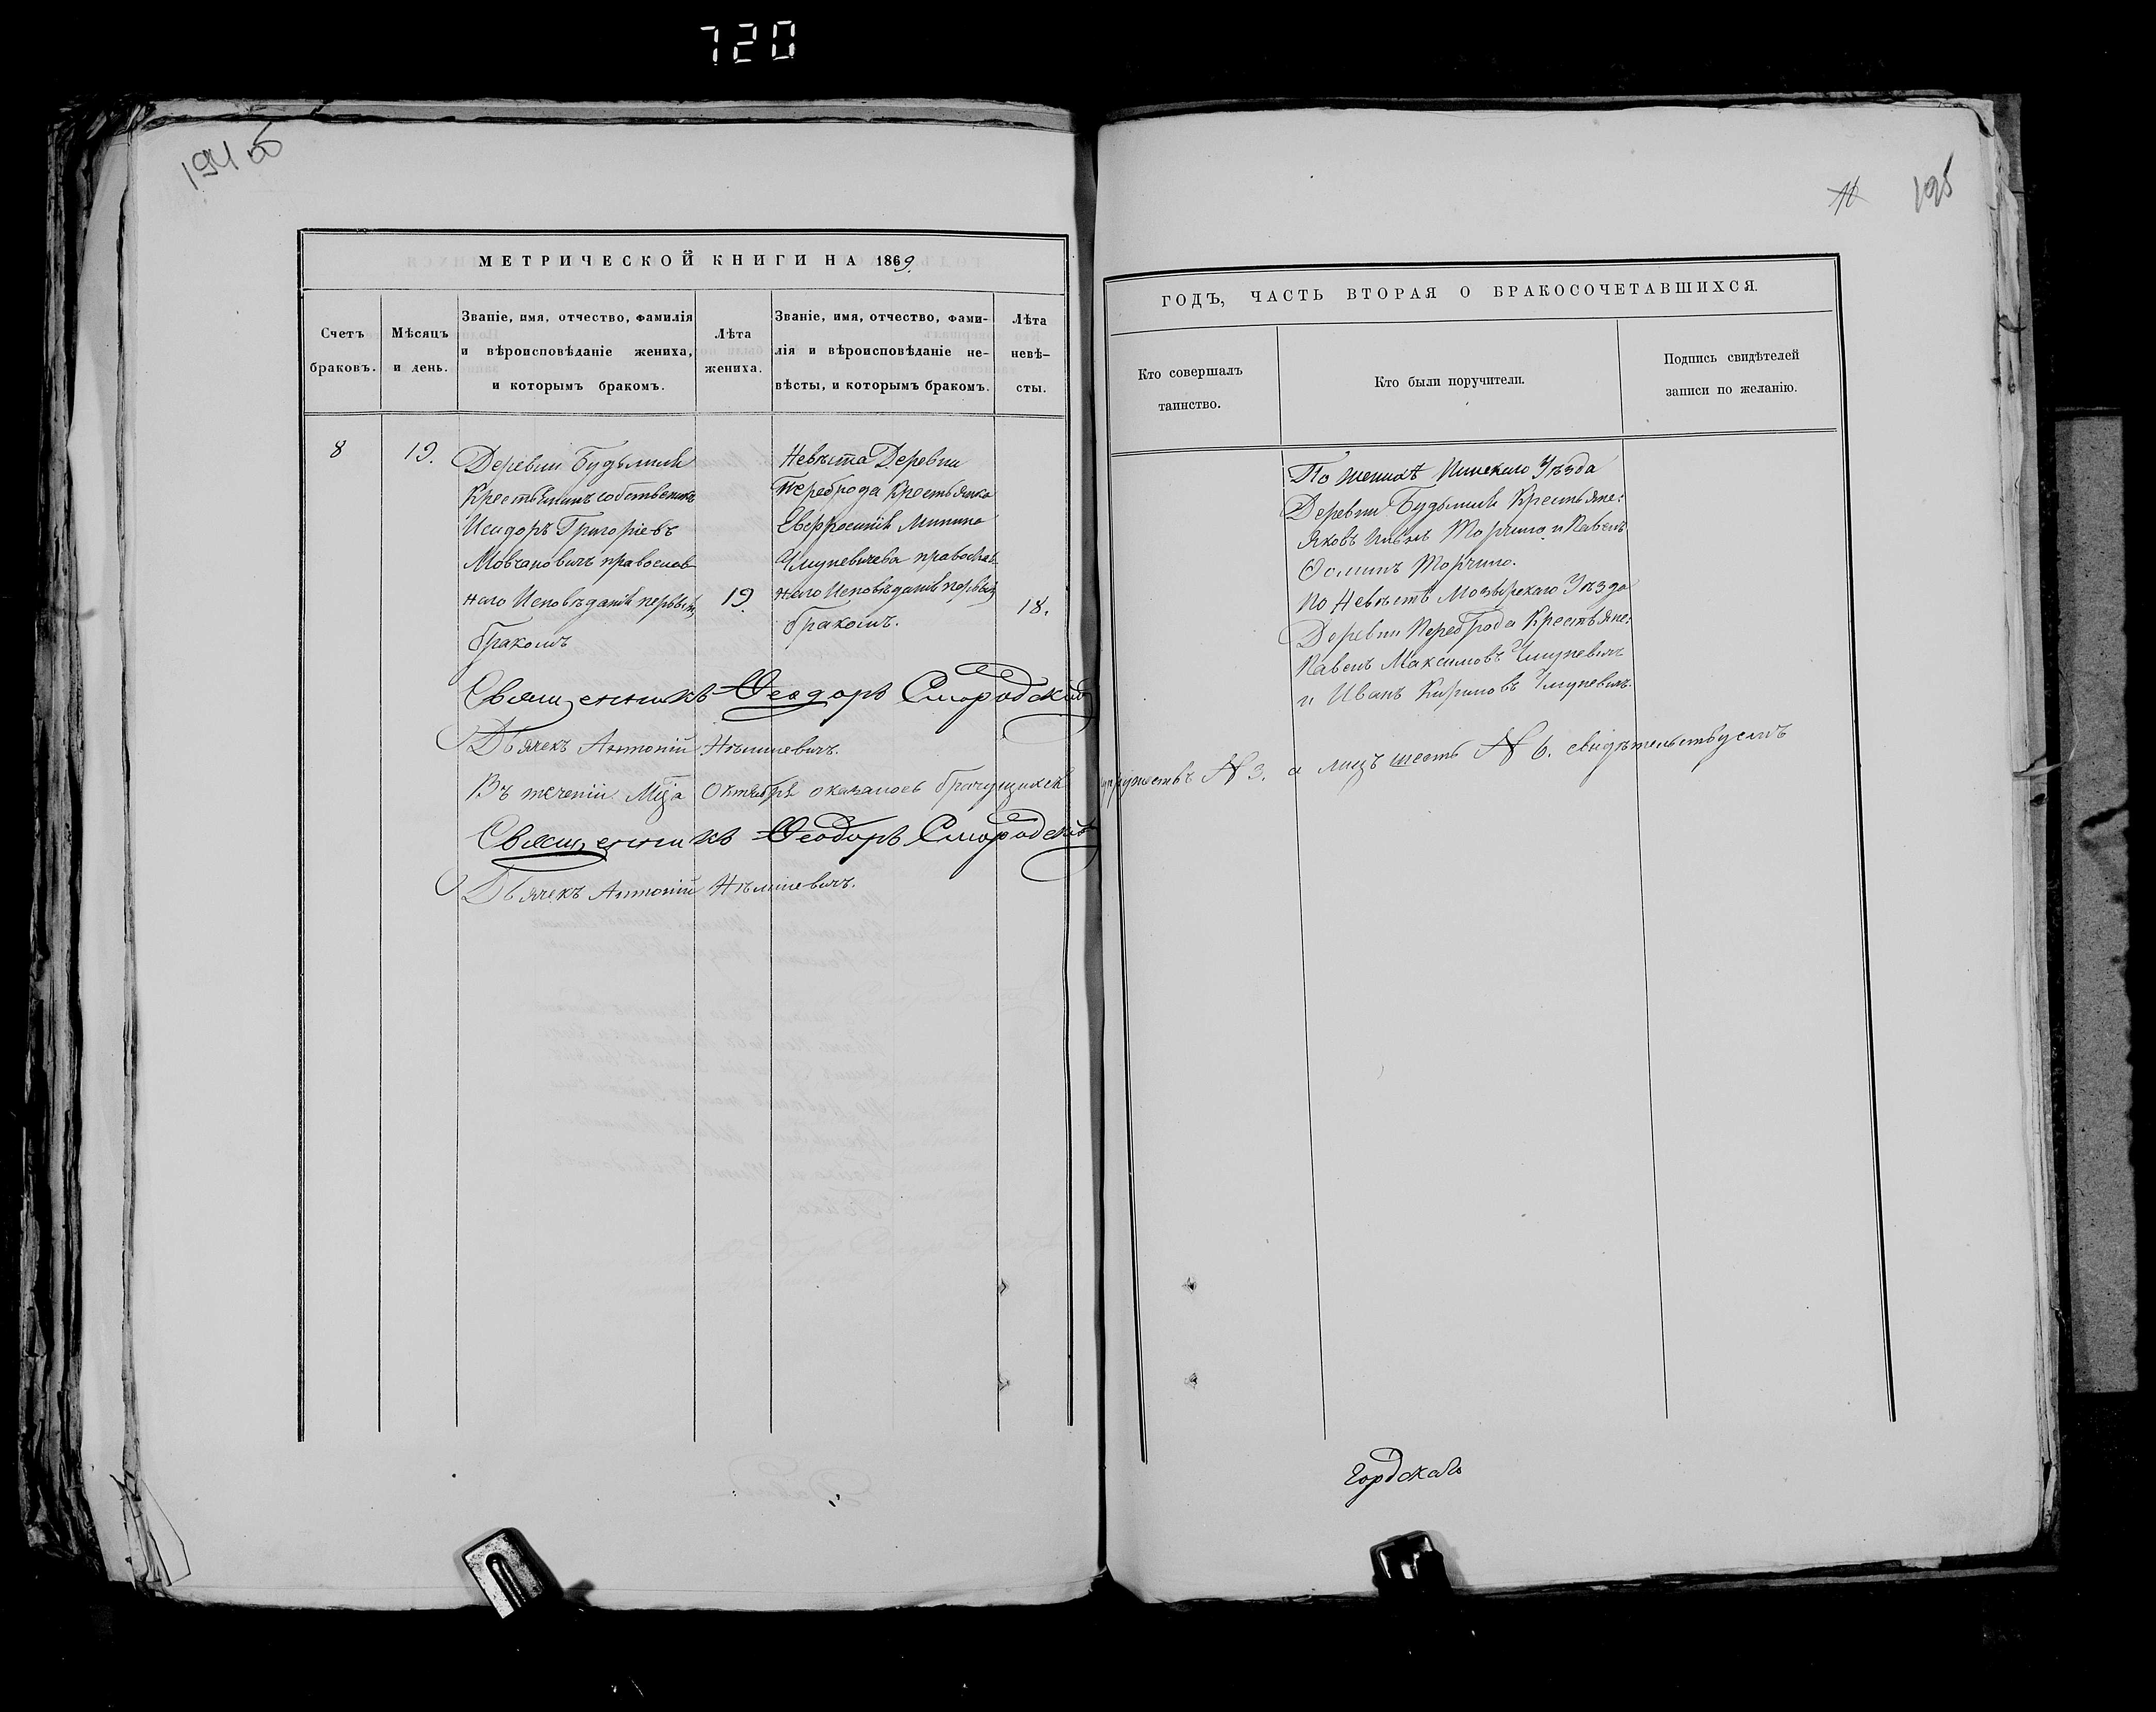 720
194 об
МЕТРИЧЕСКОЙ КНИГИ НА 1869
Счетъ браковъ.
Мѣсяцъ и день.
Званіе, имя, отчество, фамилія и вѣроисповѣданіе жениха, и которымъ бракомъ.
Лѣта жениха.
Званіе, имя, отчество, фами-
лія и вѣроисповѣданіе не-
вѣсты, и которымъ бракомъ.
Лѣта
невѣ-
сты.
8
19.
Деревни Будымля
Крестьянинъ собственикъ
Исидоръ Григоріевъ
Мовчановичъ православ
наго Исповѣданія первымъ
бракомъ
19.
Невѣста Деревни
Переброда Крестьянка
Евфросинія Минина
Чмуневичева православ
наго Исповѣданія первымъ
бракомъ.
18.
Священникъ Ѳеодоръ Смородскій
Дьячекъ Антоній Нѣмшевичъ.
Въ теченіи Мца Октября оказалось брачущихся
Священникъ Ѳеодоръ Смородскій
Дьячекъ Антоній Нѣмшевичъ.
195
ГОДЪ, ЧАСТЬ ВТОРАЯ О БРАКОСОЧЕТАВШИХСЯ.
Кто совершалъ
таинство.
Кто были поручители.
Подпись свидѣтелей
записи по желанію.
По женихѣ Пинскаго Уѣзда
Деревни Будымля Крестьяне:
Яковъ Торчило и Павелъ
Торчило.
По Невѣстѣ Мозырскаго Уѣзда
Деревни Переброда Крестьяне:
Павелъ Максимовъ Чмуневичъ
и Иванъ Кириловъ Чмуневичъ.
супружествъ № 3. а лицъ шесть № 6. свидѣтельствуемъ